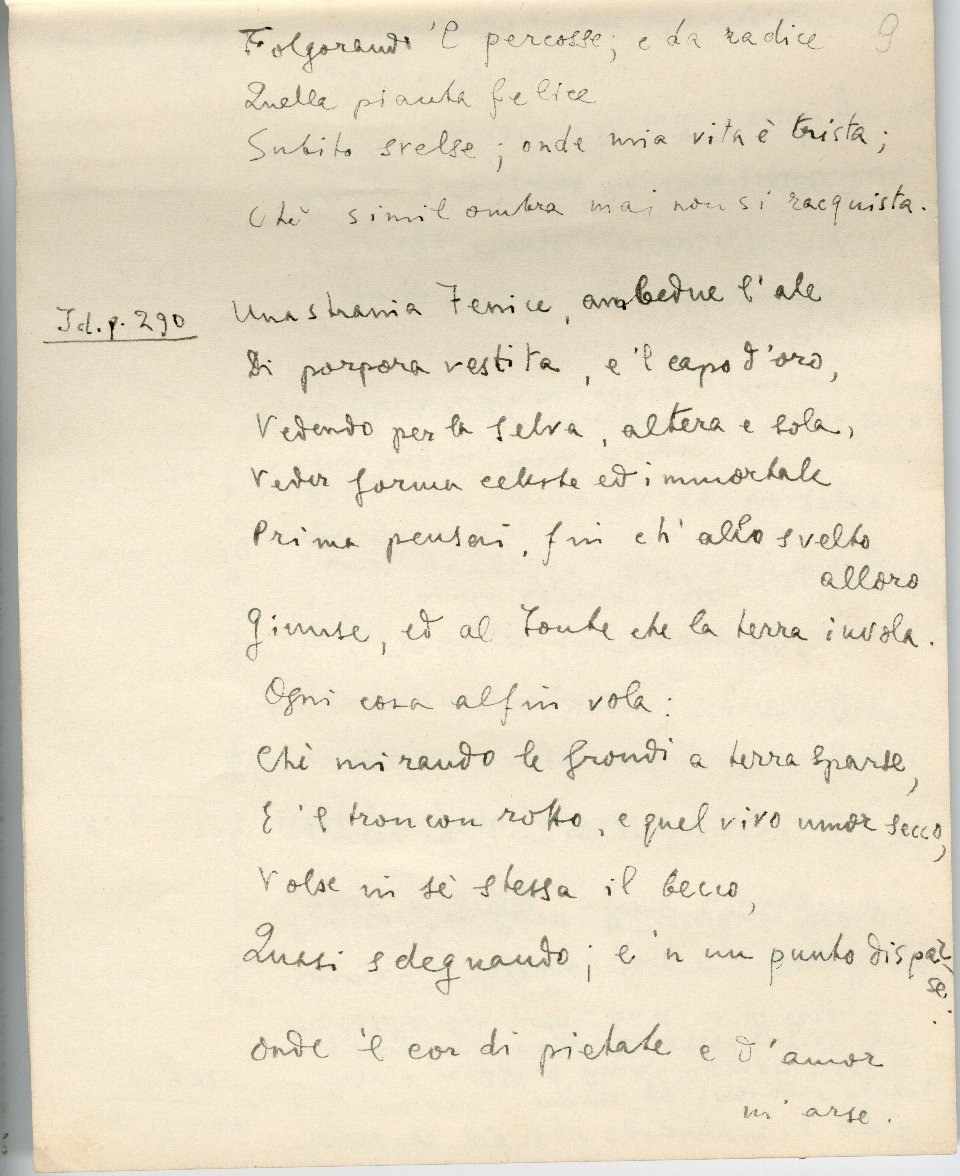 Folgorando 'l percosse; e da radice
9
Quella pianta felice
Subito svelse; onde mia vita è trista;
Chè simil ombra mai non si racquista.
Id. p. 290
Una strania Fenice, ambedue l'ale
Di porpora vestita, e 'l capo d'oro,
Vedendo per la selva, altera e sola,
Veder forma celeste ed immortale
Prima pensai, fin ch' allo svelto
alloro
Giunse, ed al Fonte che la terra invola.
Ogni cosa alfin vola:
Chè mirando le frondi a terra sparse,
E 'l troncon rotto, e quel vivo umor secco,
Volse in sè stessa il becco,
Quasi sdegnando; e 'n un punto dispar-
se:
Onde 'l cor di pietate e d'amor
m' arse.